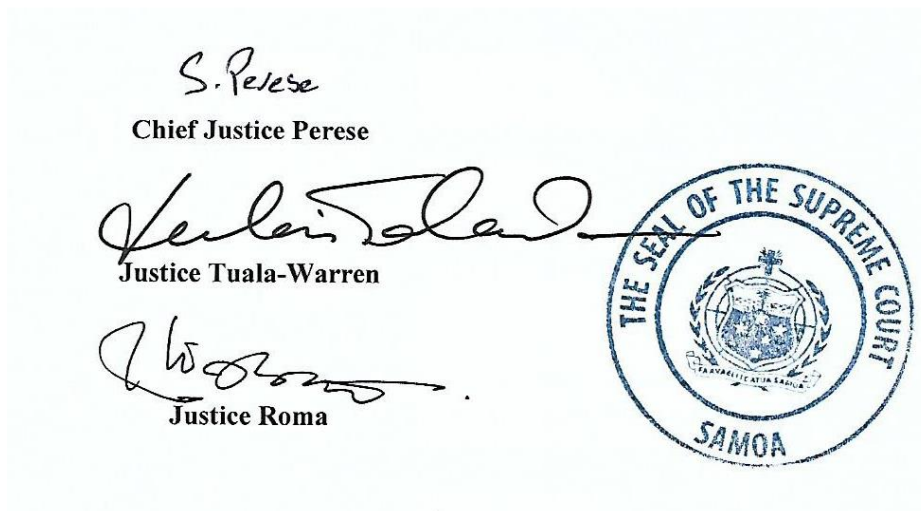 S. Perese
Chief Justice Perese
Justice Tuala-Warren
Justice Roma
THE SEAL OF THE SUPREME COURT
FAAVAE I LE ATUA SAMOA
SAMOA